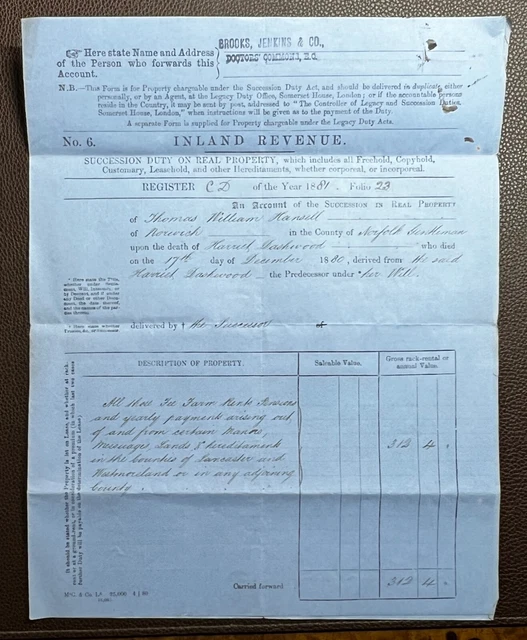 BROOKS, JENKINS & CO.,
DOCTORS' COMMONS, E.C.
Here state Name and Address
of the Person who forwards this
Account.
N.B.—This Form is for Property chargeable under the Succession Duty Act, and should be delivered in duplicate, either
personally, or by an Agent, at the Legacy Duty Office, Somerset House, London; or if the accountable persons
reside in the Country, it may be sent by post, addressed to "The Controller of Legacy and Succession Duties,
Somerset House, London," when instructions will be given as to the payment of the Duty.
A separate Form is supplied for Property chargeable under the Legacy Duty Acts.
No. 6. INLAND REVENUE.
SUCCESSION DUTY ON REAL PROPERTY, which includes all Freehold, Copyhold,
Customary, Leasehold, and other Hereditaments, whether corporeal, or incorporeal.
REGISTER C D of the Year 1881. Folio 23
An Account of the SUCCESSION IN REAL PROPERTY
of Thomas William Hansell
of Norwich in the County of Norfolk Gentleman
upon the death of Harriet Dashwood who died
on the 17th day of December 1880, derived from the said
Harriet Dashwood the Predecessor under * her Will.
* Here state the Title,
whether under Settlement,
Will, Intestacy, or
by Descent, and if under
any Deed or other Document,
the date thereof,
and the names of the parties
thereto.
† Here state whether
Trustee, &c., or Successor.
delivered by † the Successor
It should be stated whether the Property is let on Lease, and whether at rack-
rent or at a ground-rent, or in consideration of a premium (in which last two cases
further Duty will be payable on the determination of the Lease).
DESCRIPTION OF PROPERTY. Saleable Value. Gross rack-rental or
annual Value.
All those Fee Farm Rents Pensions
and yearly payments arising out
of and from certain Manors
Messuages Lands & Hereditaments 312 4
in the Counties of Lancaster and
Westmoreland or in any adjoining
County
Carried forward 312 4
McC. & Co. Ld. 25,000 4 | 80